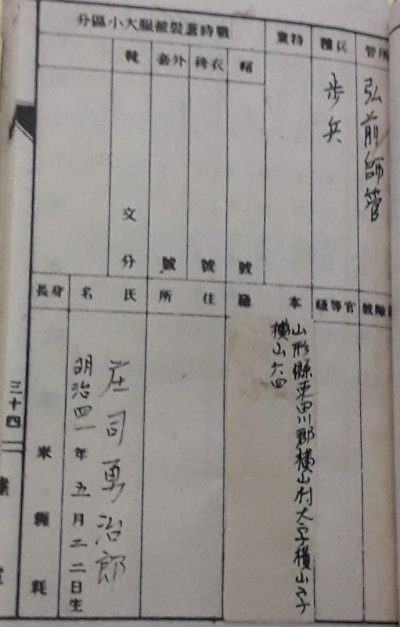 所管
弘前師管
兵種
歩兵
特業
戰時著裝被服大小區分
帽
號
衣袴
號
外套
號
靴
文
分
官等級
本籍
山形縣東田川郡横山村大字横山字
横山六四
住所
氏名
庄司勇治郎
明治四一年五月二二日生
身長
米
糎
粍
三十四